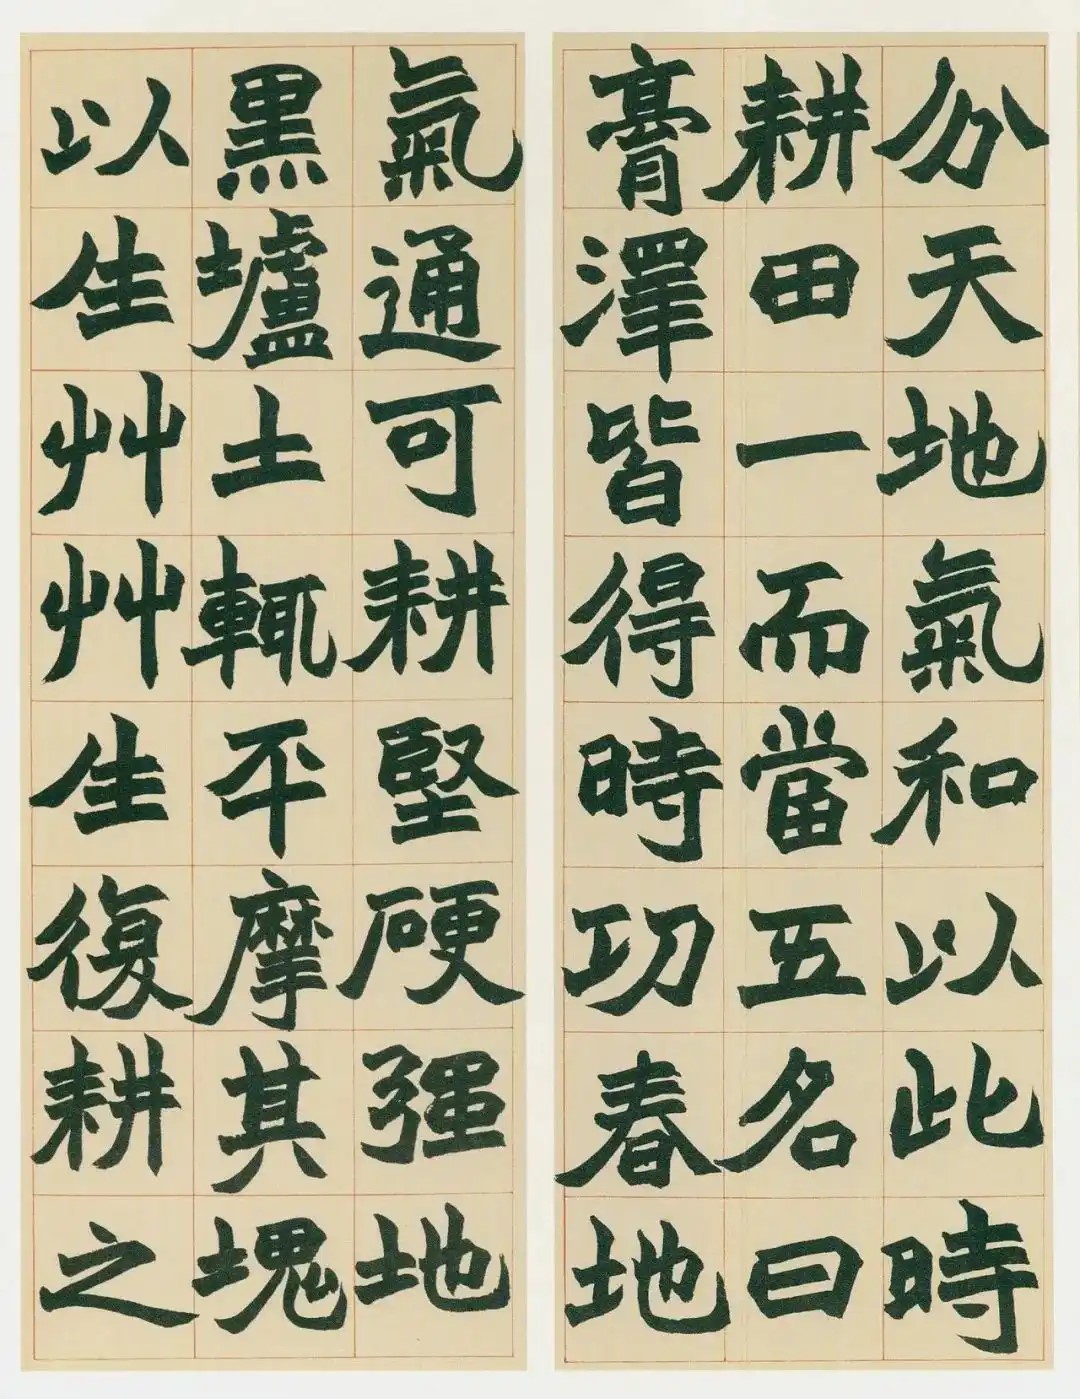 分天地氣和以此時
耕田一而當五名曰
膏澤皆得時功春地
氣通可耕堅硬强地
黑壚土輒平摩其塊
以生艸艸生復耕之